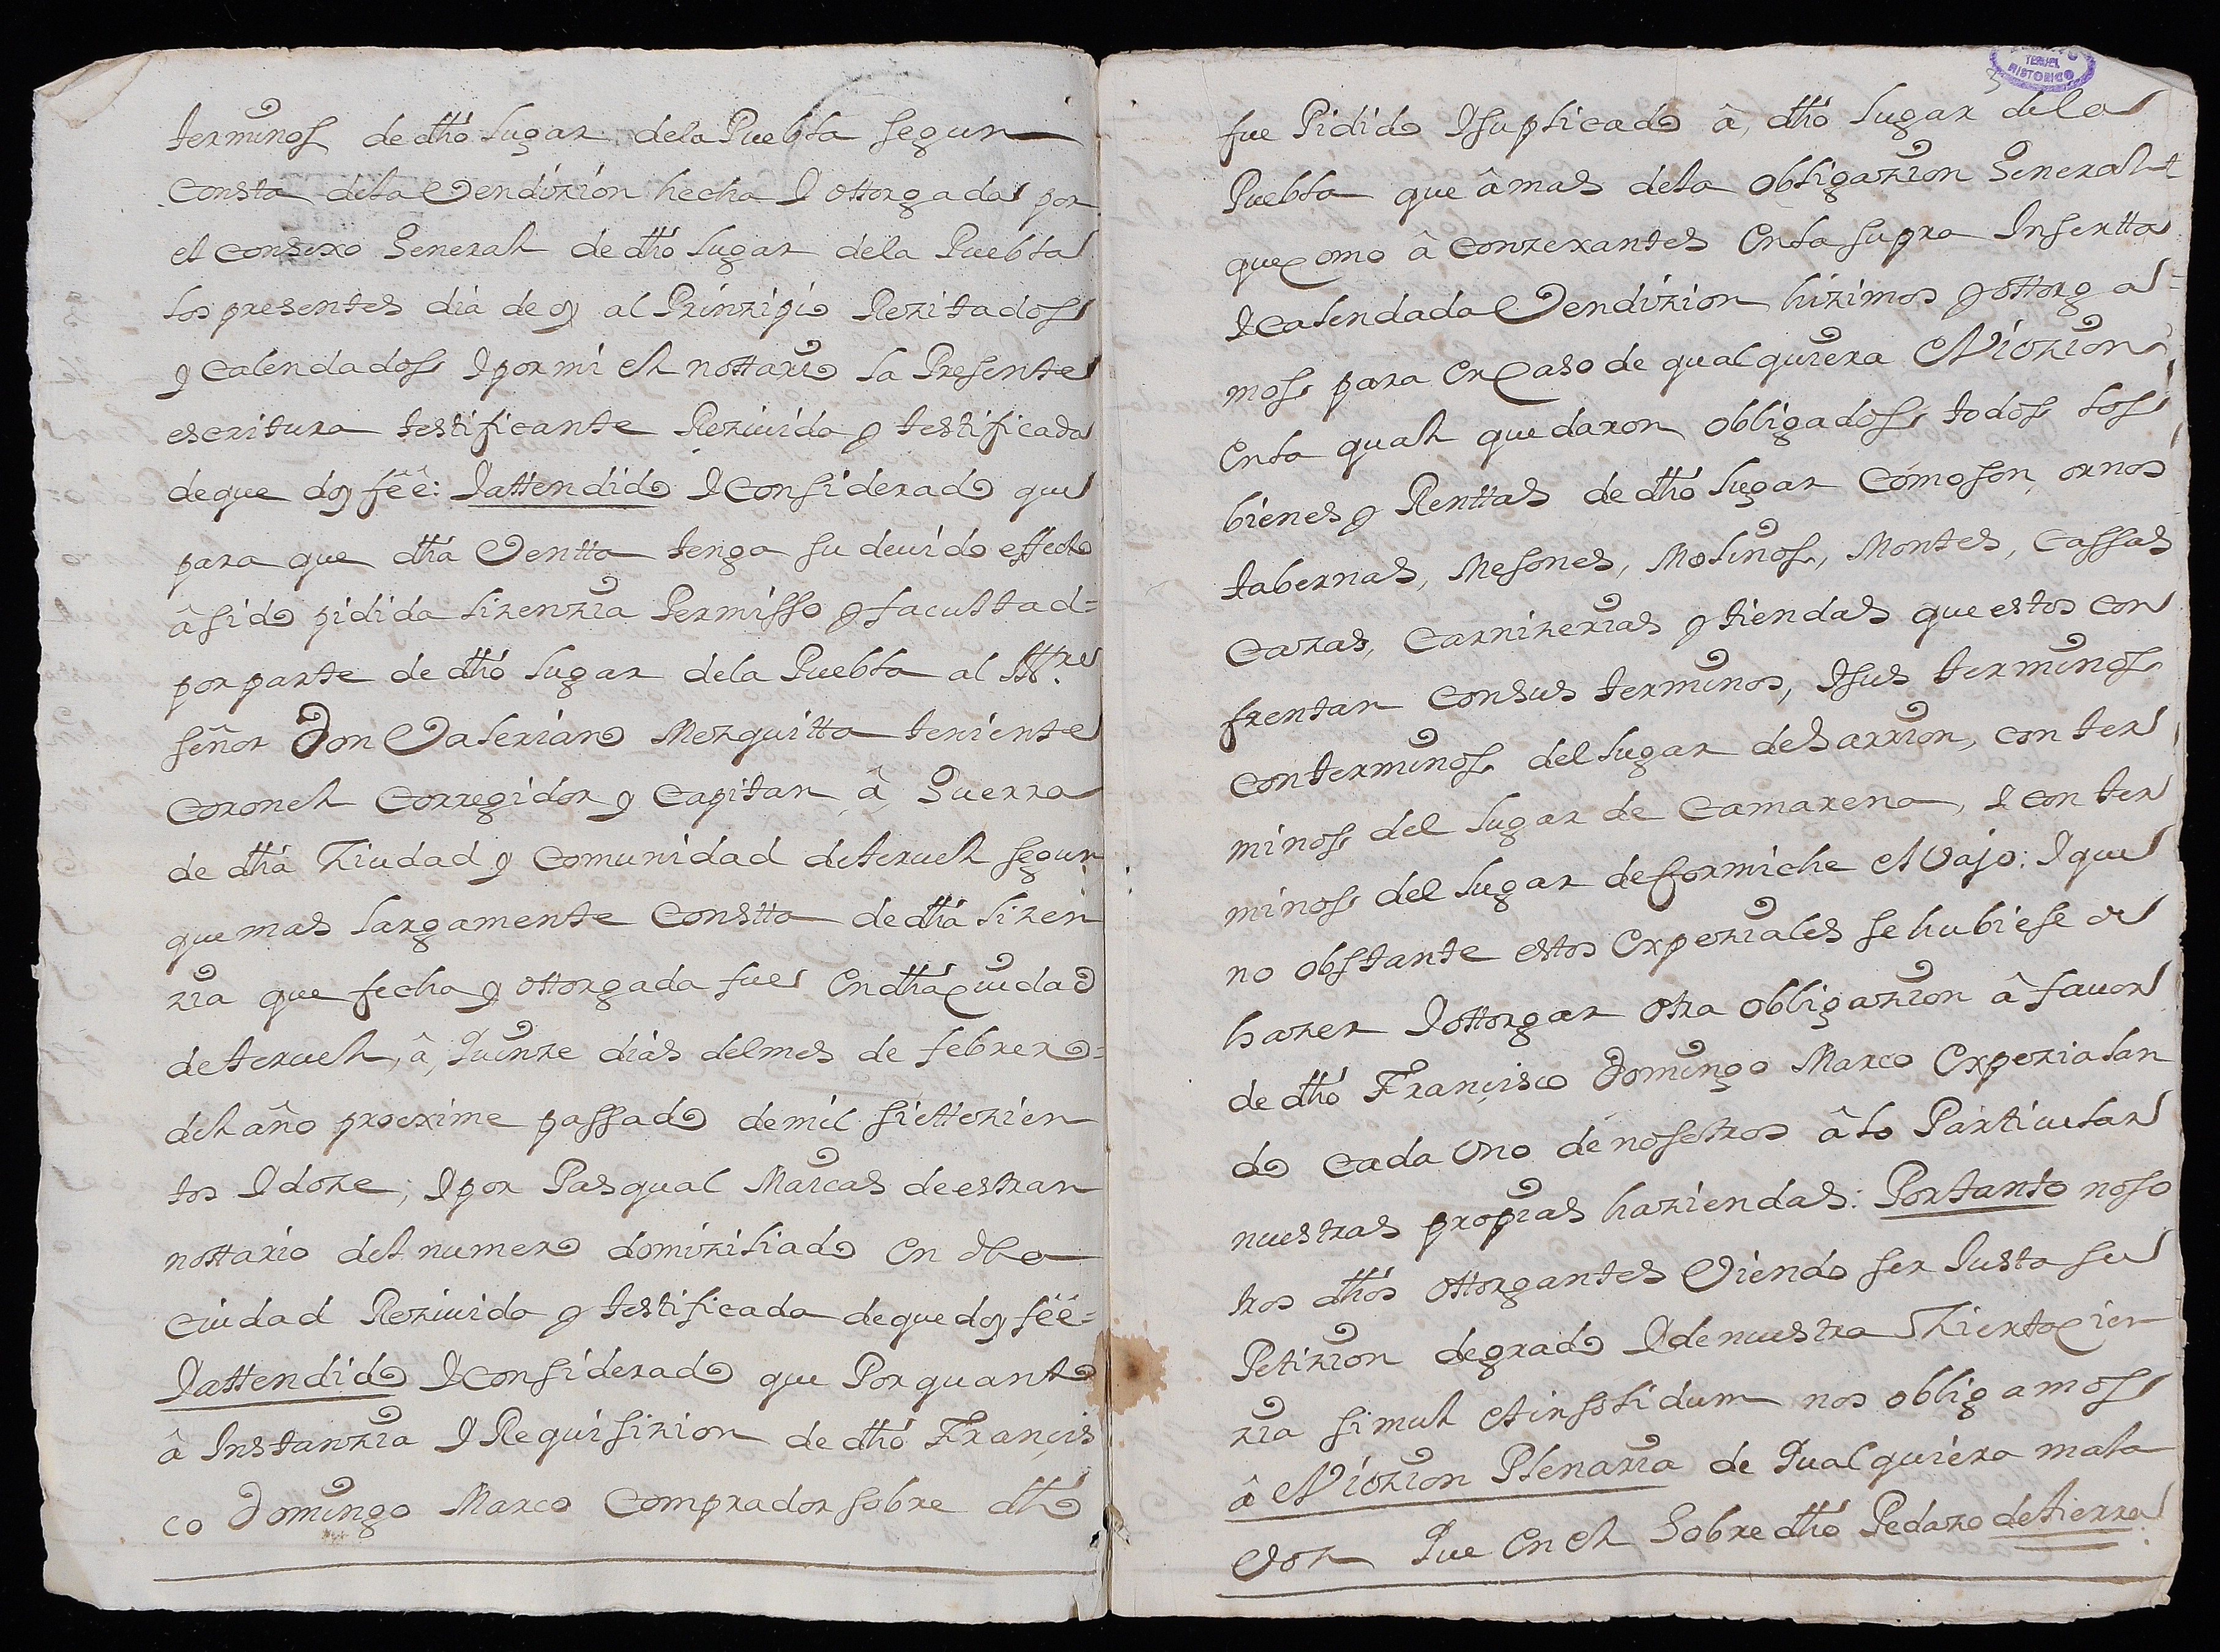 terminos de dho lugar dela Puebla segun
consta dela Vendizion hecha y ottorgada por
el conzexo General de dho lugar dela Puebla
los presentes dia de oy al Prinzipio Rezitados
y Calendados y por mi el nottario la Presente
escritura testificante Rezivida y testificada
de que doy feê: Y attendido y considerado que
para que dha Ventta tenga su devido effecto
â sido pidida lizenzia Permisso y facultad=
por parte de dho lugar dela Puebla al Itt.re
señor Don Valeriano Mezquitta teniente
Coronel Corregidor y Capitan â Guerra
de dha Ziudad y Comunidad de teruel segun
que mas largamente constta de dha lizen
zia que fecha y ottorgada fue en dha ciudad
de teruel, â Quinze dias del mes de febrero=
del año proxime passado de mil siettezien
tos y doze; y por Pasqual Marcas de estran
nottario del numero domiziliado en dha
Ciudad Rezivida y testificada de que doy feê=
Y attendido y considerado que Por quanto
â Instanzia y Requisizion de dho Françis
co Domingo Marco Comprador sobre dho
TERUEL
HISTORICO
fue Pidido y suplicado â, dho lugar dela
Puebla que âmas dela obligazion General
que como â conzexantes en la supra Insertta
y calendada Vendizion hizimos y ottorga=
mos para en caso de qualquiera Eviczion
en la qual quedaron obligados todos los
bienes y Renttas de dho lugar como son, ornos
tabernas, Mesones, Molinos, Montes, Cassas
Cazas, Carnizerias y tiendas que estos con
frentan con sus terminos, y sus terminos
con terminos del lugar de Sarrion, con ter
minos del lugar de Camarena, y con ter
minos del lugar de formiche el Vajo: Y que
no obstante estos expeziales se hubiese de
hazer y ottorgar otra obligazion â favor
de dho Françisco Domingo Marco expezialan
do cada uno de nosotros âlo Particular
nuestras propias haziendas: Por tanto noso
tros dhos ottorgantes Viendo ser Justa su
Petizion de grado y de nuestra Zierta cien
zia simul et insolidum nos obligamos
â Eviczion Plenaria de Qualquiera mala
voz Que en el sobredho Pedazo de tierra